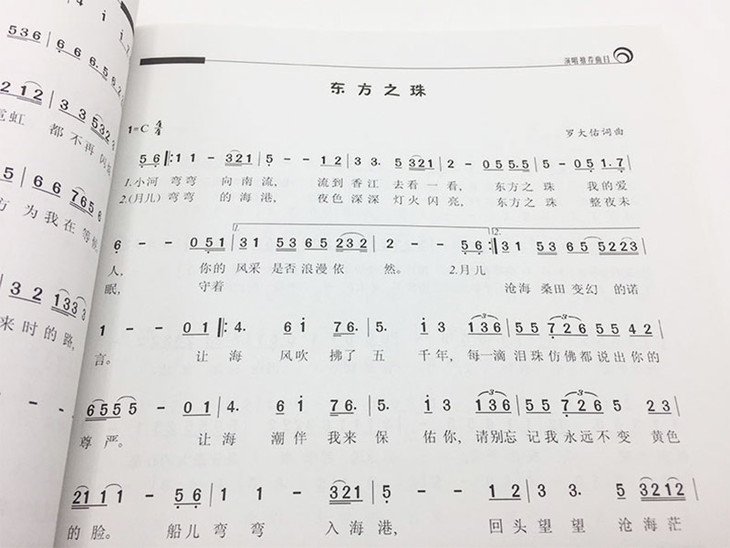 536
霓虹 都不再闪
方 为我在等
来时的路,
演唱推荐曲目
东方之珠
1=C 4/4
罗大佑词曲
5 6 |: 1 1 - 321 | 5 - 12 3 3. | 5 5321 2 - | 055.5 5. | 05 1 1.7 |
1.小河 弯弯 向南流, 流到香江 去看一看, 东方之珠 我的爱
2.(月儿)弯弯 的海港, 夜色深深 灯火闪亮, 东方之珠 整夜未
6 - - 051 | 31 535 635 232 | 2 - - 56 :| 31 535 6535 5223 |
人, 你的 风采 是否浪漫依 然。 2.月儿
眠, 守着 沧海 桑田变幻 的诺
1 - - 01 |: 4. 6 i 76. | 5. i 3 136 | 55 7265 5555 |
言。 让海 风吹 拂了五 千年, 每一滴 泪珠仿佛都说出你的
6555 5 - 01 | 4. 6 i 76. | 5. i 3 136 | 55 7265 2 3 |
尊严。 让海 潮伴 我来保 佑你, 请别忘 记我永远不变 黄色
211 1 - 56 | 1 1 - 321 | 5 - 12 3 | 3. 5 5321 |
的脸。 船儿 弯弯 入海港, 回头望望 沧海茫